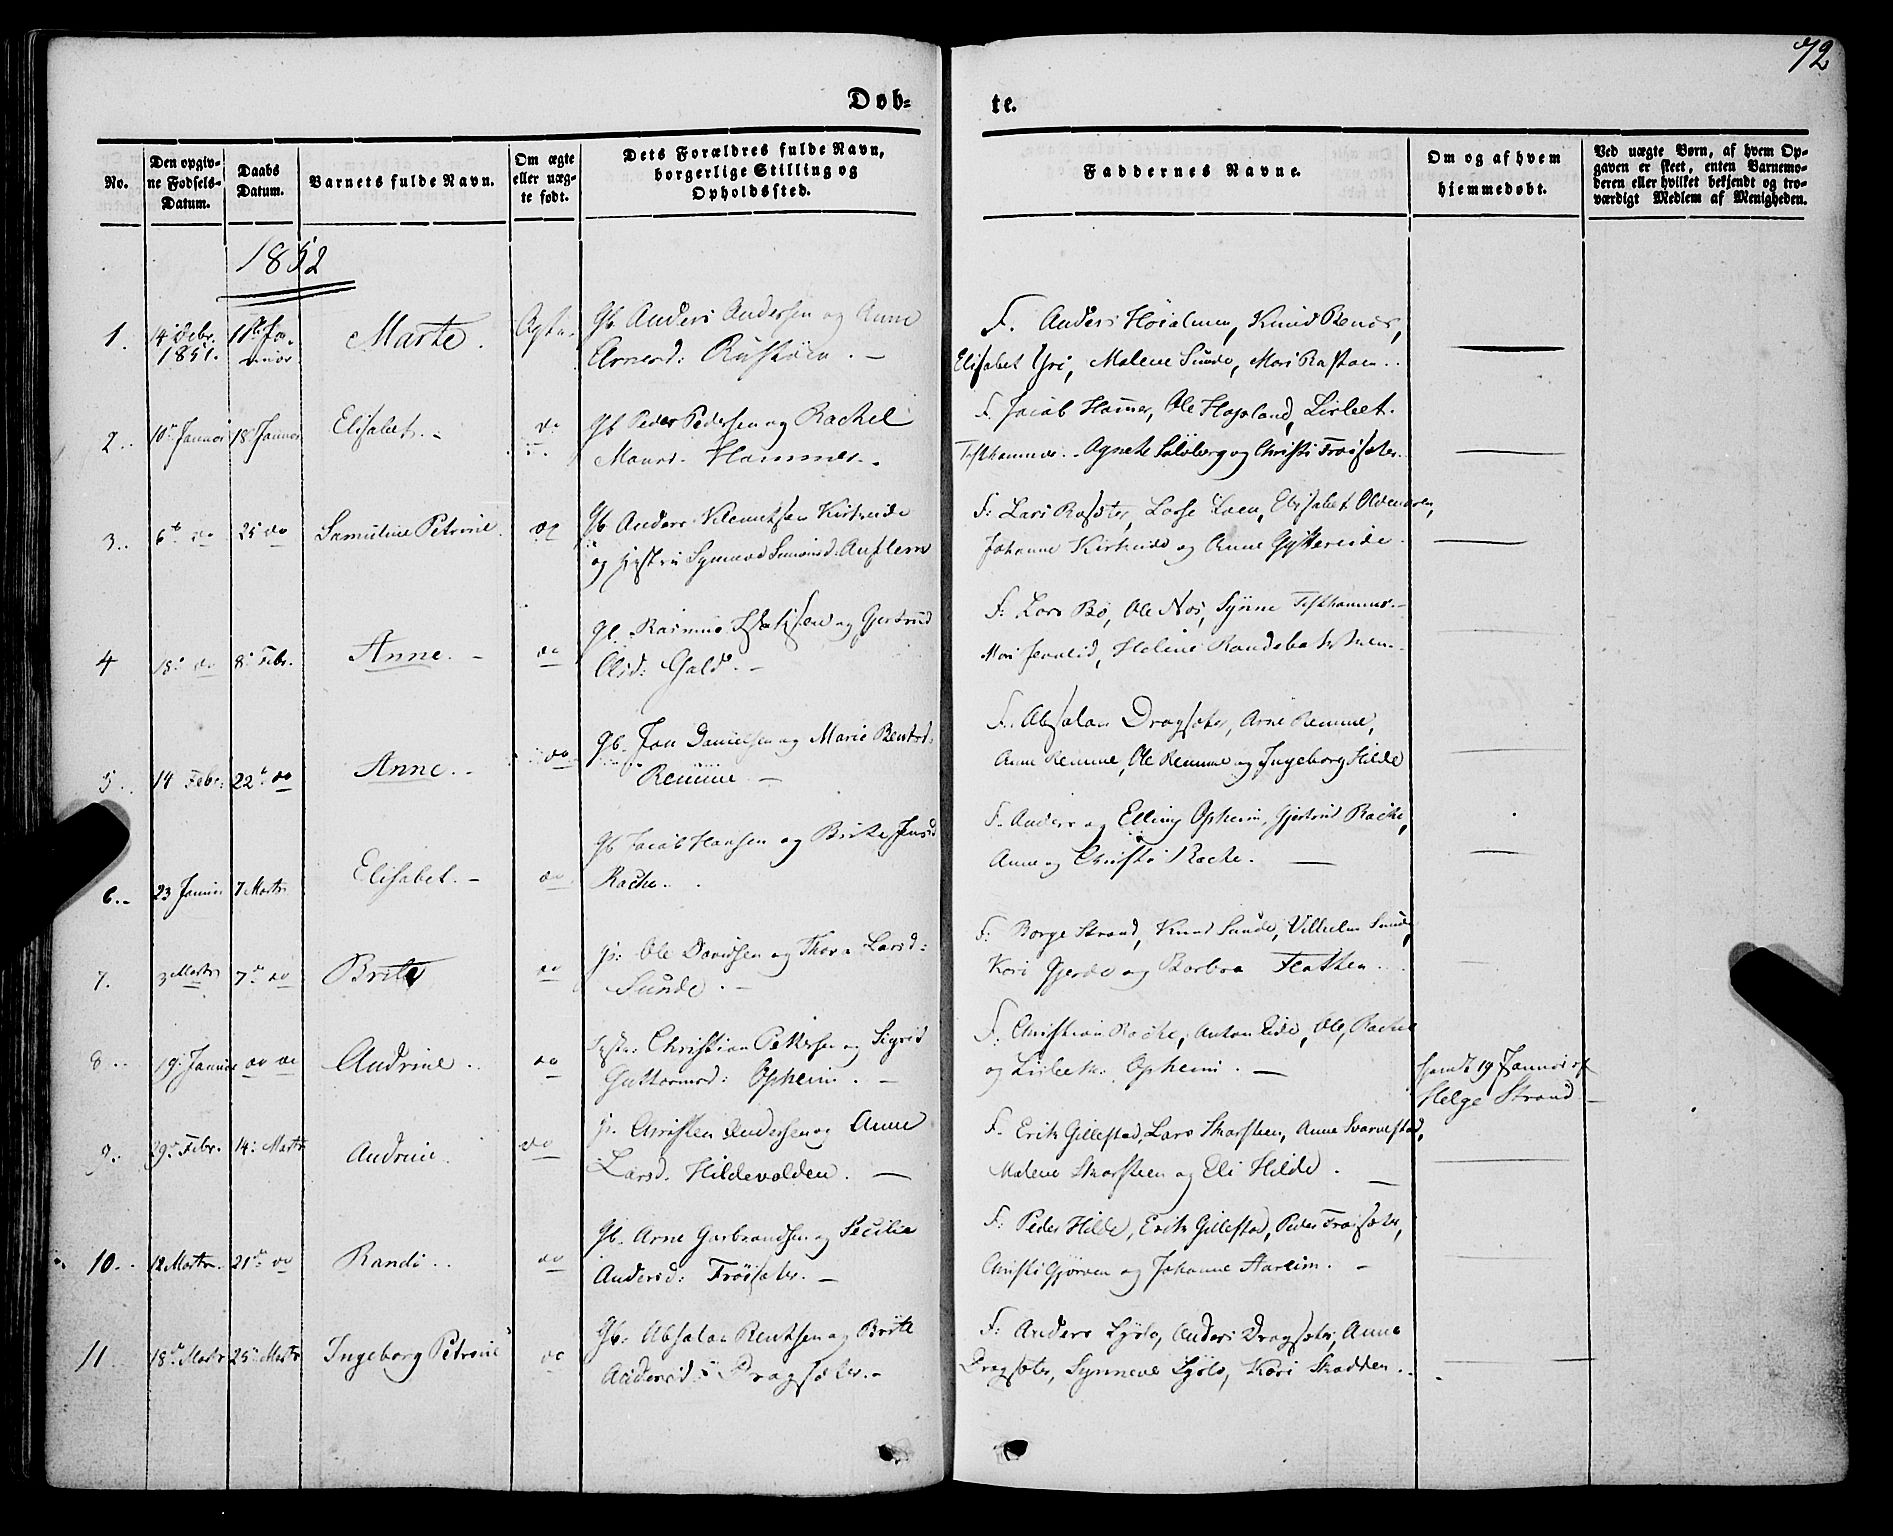 72
Døb=
te.
No.
Den opgiv-
ne Fødsels-
Datum.
Daabs
Datum.
Barnets fulde Navn.
Om ægte
eller uæg-
te født.
Dets Forældres fulde Navn,
borgerlige Stilling og
Opholdssted.
Faddernes Navne.
Om og af hvem
hjemmedøbt.
Ved uægte Børn, af hvem Op-
gaven er skeet, enten Barnemo-
deren eller hvilket bekjendt og tro-
værdigt Medlem af Menigheden.
1852
1. 14 Debr. 1ste Ja- Marte. Ægte. Gb. Anders Andersen og Anne
1851. nuar Rustøen. —
F. Anders Knud
Elisabet Yri, Malene Sunde, Mari
2. 10de Januar 18 Januar Elisabet. do Gb Peder Pedersen og Rachel
Monsd. Hammer.
F. Jacob Hammer, Ole Lisbet
Agnete Solvberg og Christi Troisæter.
3. 6te do 25 do Samuline Petrine. do Gb Anders Kirkeide
og Synneve Auflem
F: Lars Lasse Loen, Elisabet Oldenøren,
Johanne Kirkeide og Anne Gytkereide.
4 do 8: Febr. Anne. do Gb. Rasmus og Gjertrud
Olsd: Gald. —
F: Lars Bø, Ole Nos, Synne
Mari Helene
5. 14 Febr: 22de do Anne. do Gb. Jon Danielsen og Marie Bentsd.
Remme —
F. Absalon Dragsæter, Arne Remme,
Anne Remme, Ole Remme og Ingeborg Hilde
6. 23 Januar 7 Marts Elisabet. do Gb Jacob Hansen og Brite Jensd
Rache.
F. Anders og Elling Opheim, Gjertrud Rache,
Anne og Christi Rache. —
7. 3 Marts 7de do Brite do Ole Davidsen og Thora Larsd:
Sunde. —
F: Børge Strand, Knud Sunde, Vilhelm Sunde,
Kari Gjerde og Barbra Flathen.
8 19. Januar do do Andrine. do Christian Pettersen og Sigrid
Guttormsd: Opheim. —
F. Christian Rache, Anton Eide, Ole Rache
og Lisbeth Opheim. —
hjemdt 19 Januar af
Helge Strand —
9. 29de Febr. 14: Marts Andrine. do Christen Andersen og Anne
Larsd. Hildevolden. —
F. Erik Gillestad, Lars Skarsteen, Anne Svarvestad,
Malene Skarsteen og Eli Hilde. —
10. 12 Marts. 21de do Randi. do Gb. Arne Gurbrandsen og Secilie
Andersd: Troisæter. —
F: Peder Hilde, Erik Gillestad, Peder Troisæter,
Christi Gjørven og Johanne Aareim. —
11. 18de Marts 25de Marts Ingeborg Petrine do Gb: Absalon Bentsen og Brite
Andersd: Dragsæter. —
F: Anders Lyslo, Anders Dragsæter, Anne
Dragsæter, Synneve Lyslo, Kari Skadden.